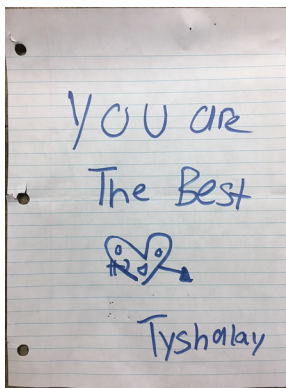 YOU are
The Best
Tyshalay